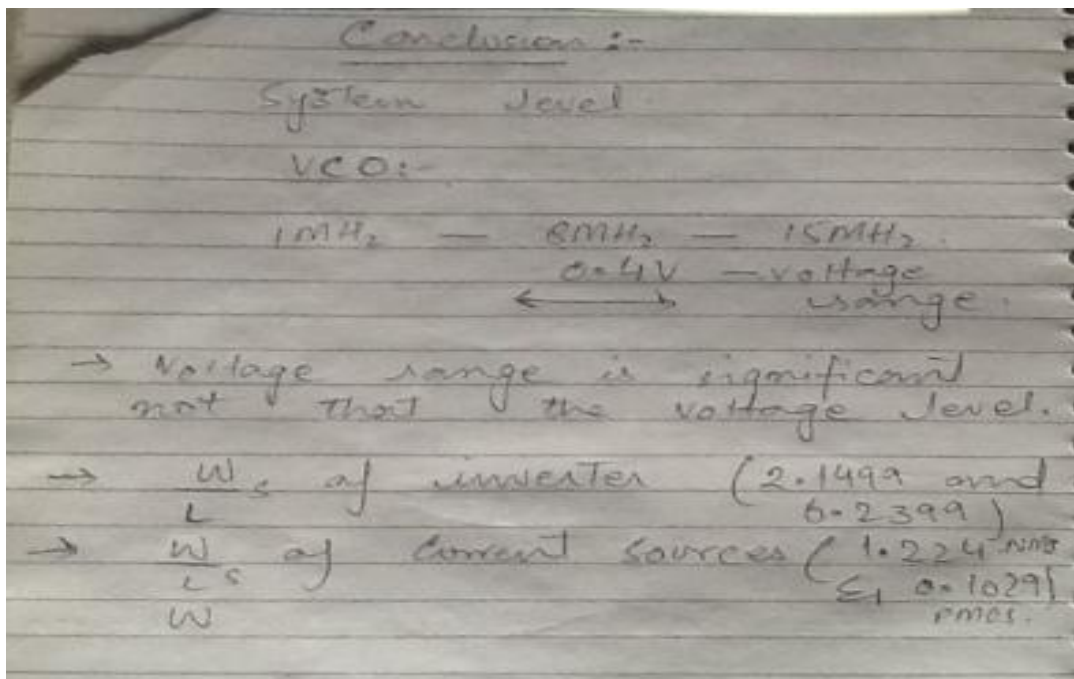 Conclusion :-
System level
VCO:-
1MHz — 8MHz — 15MHz.
0.4V — voltage
range.
→ Voltage range is significant
not that the voltage level.
→ W/L s of inverter (2.1499 and
6.2399)
→ W/L s of Current Sources ( 1.224 NMOS
& 0.1029)
W PMOS.